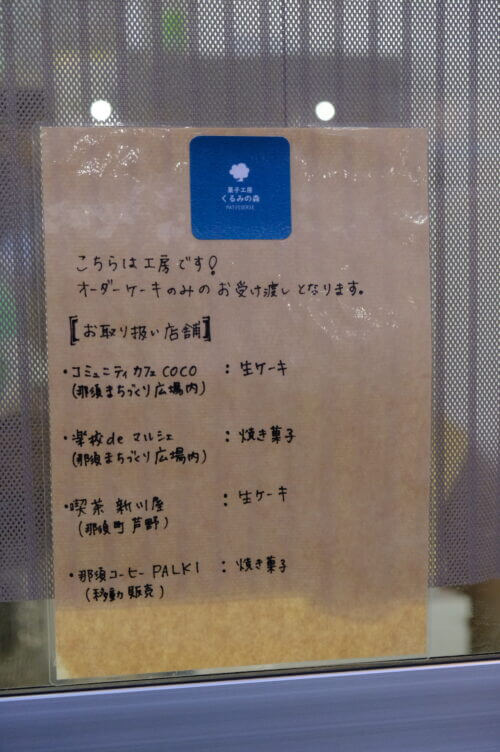 菓子工房
くるみの森
PATISSERIE
こちらは工房です!
オーダーケーキのみのお受け渡しとなります。
【お取り扱い店舗】
・コミュニティカフェCOCO : 生ケーキ
(那須まちづくり広場内)
・楽校deマルシェ : 焼き菓子
(那須まちづくり広場内)
・喫茶 新川屋 : 生ケーキ
(那須町芦野)
・那須コーヒーPALKI : 焼き菓子
(移動販売)